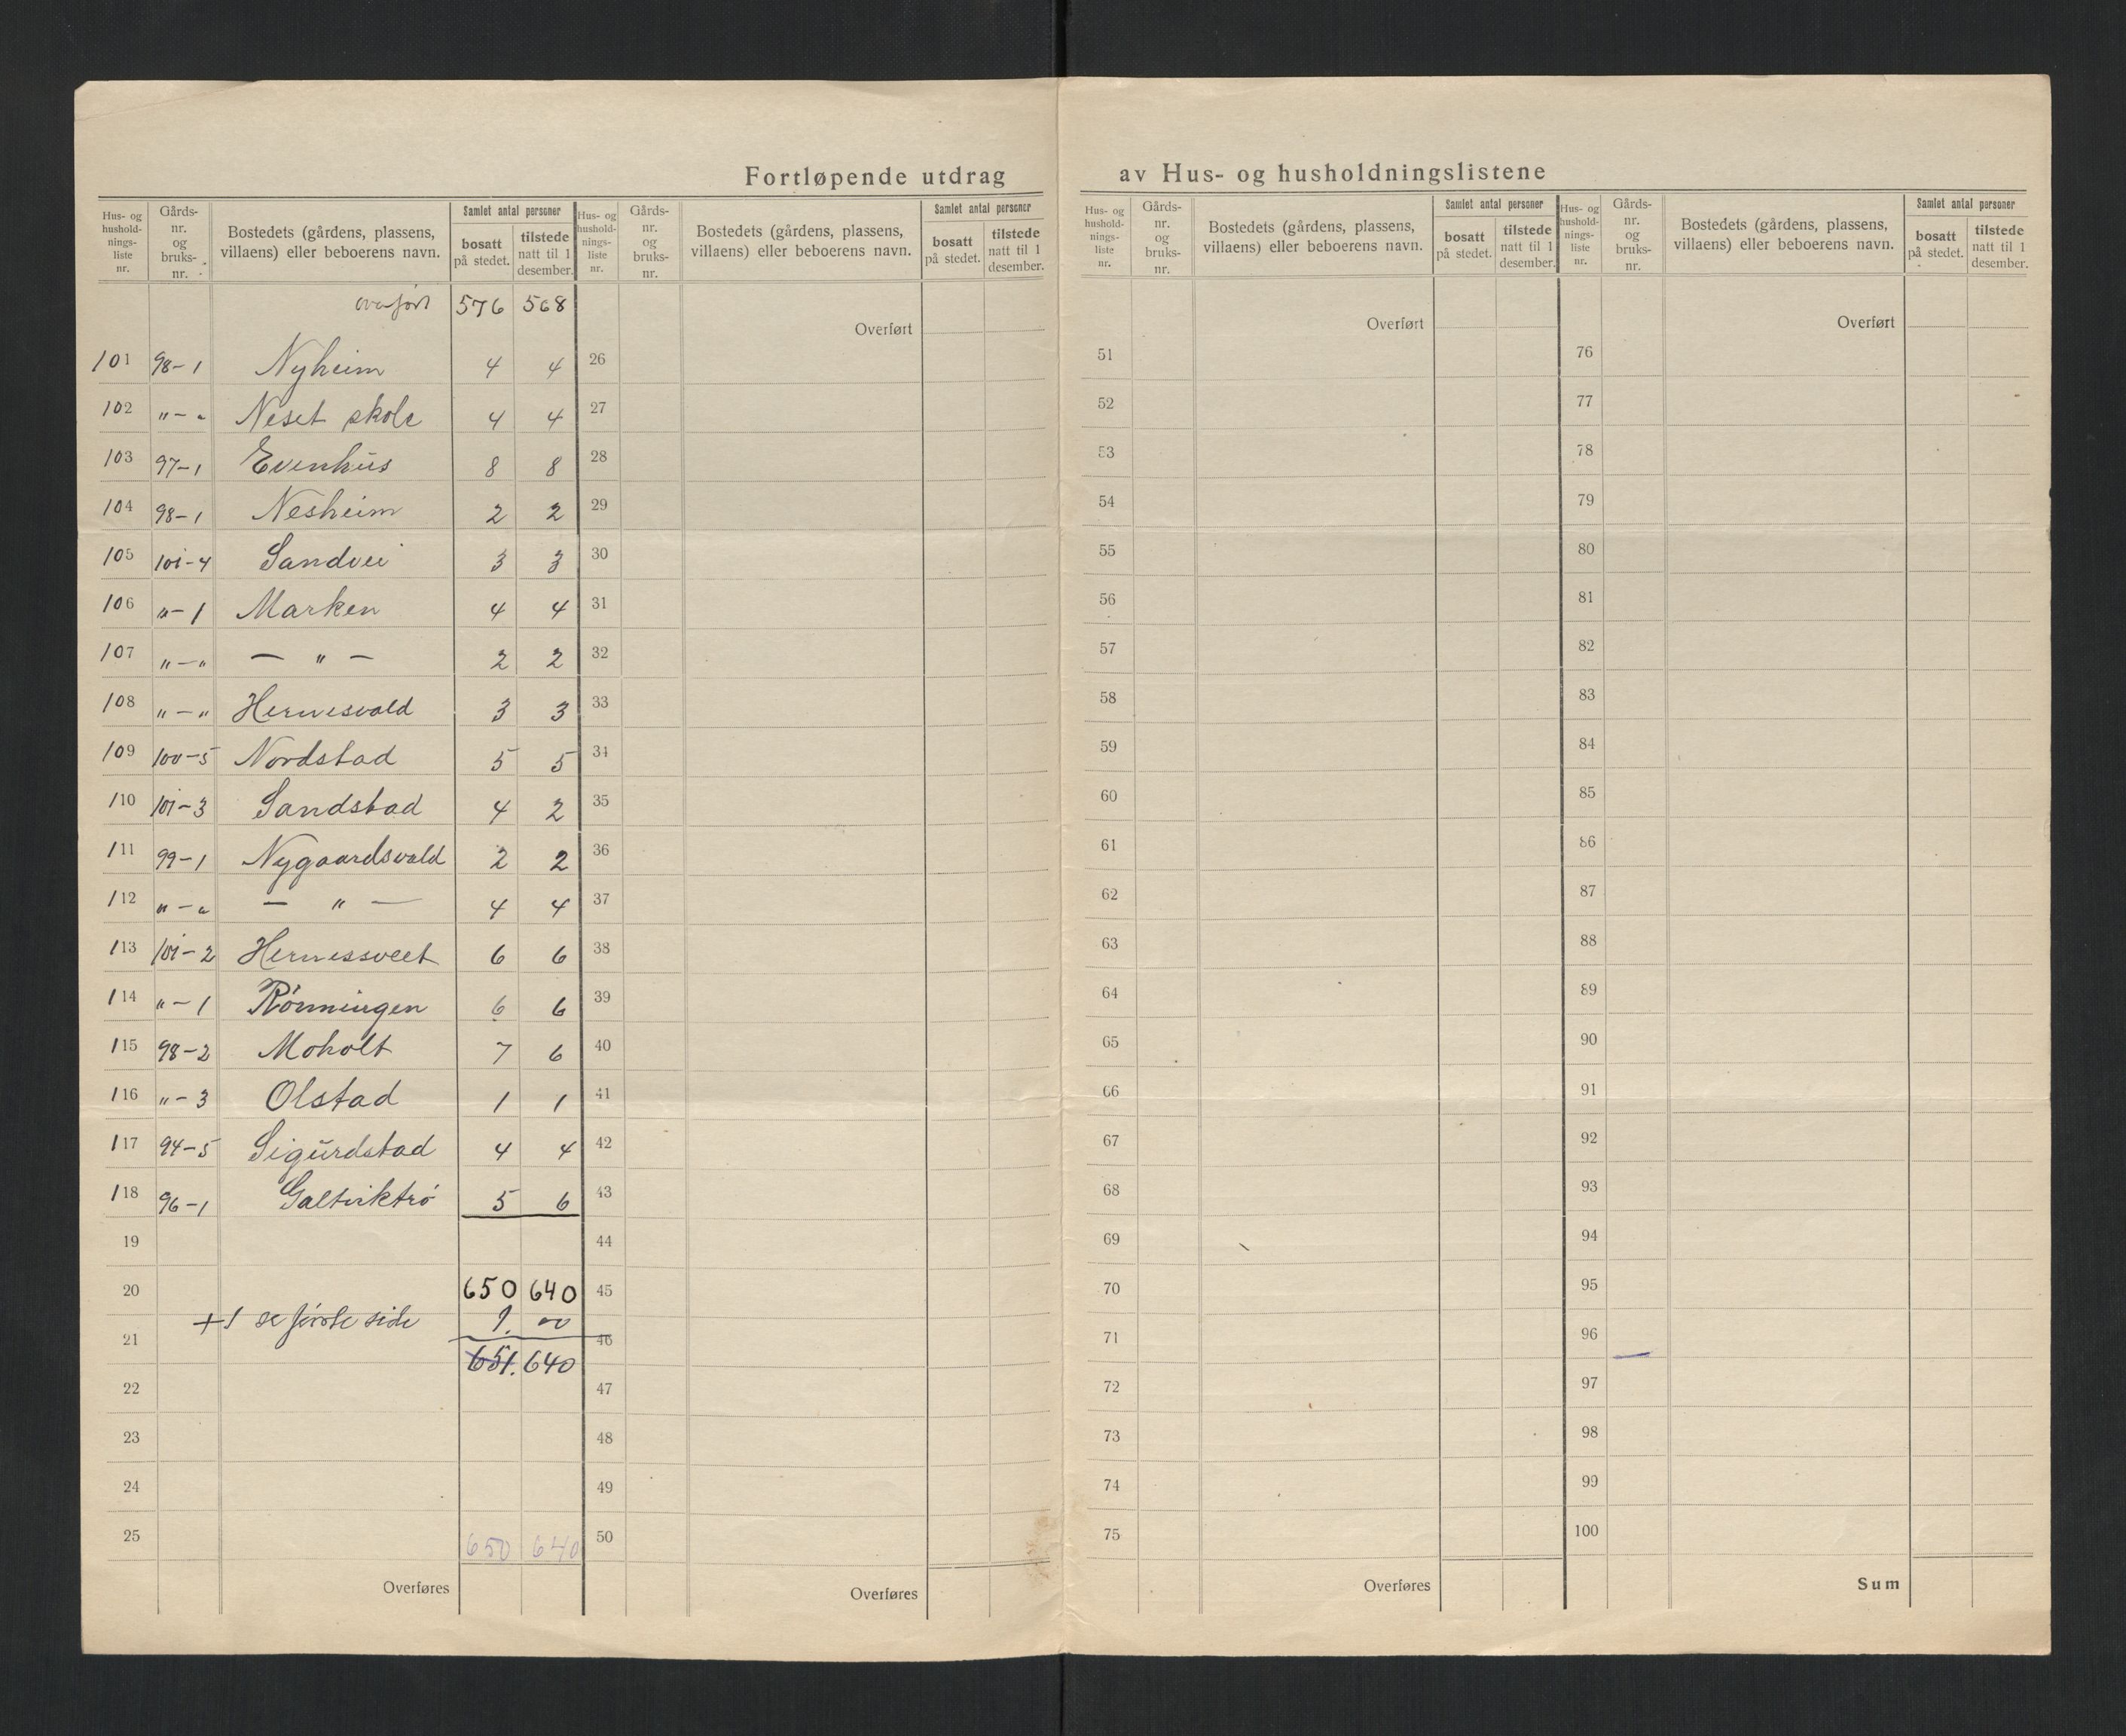 Fortløpende utdrag av Hus- og husholdningslistene
Hus- og hushold- nings- liste nr. Gårds- nr. og bruks- nr. Bostedets (gårdens, plassens, villaens) eller beboerens navn. Samlet antal personer bosatt på stedet. tilstede natt til 1 desember.
overført 576 568
101 98-1 Nyheim 4 4
102 "-" Neset skole 4 4
103 97-1 Evenhus 8 8
104 98-1 Nesheim 2 2
105 101-4 Sandvei 3 3
106 "-1 Marken 4 4
107 "-" — " — 2 2
108 "-" Hernesvald 3 3
109 100-5 Nordstad 5 5
110 101-3 Sandstad 4 2
111 99-1 Nygaardsvald 2 2
112 "-" — " — 4 4
113 101-2 Hernessveet 6 6
114 "-1 Rønningen 6 6
115 98-2 Moholt 7 6
116 "-3 Olstad 1 1
117 94-5 Sigurdstad 4 4
118 96-1 Galtviktrø 5 6
19
20 650 640
+1 se første side 1. 00
21 651. 640
22
23
24
25 650 640
Overføres
Hus- og hushold- nings- liste nr. Gårds- nr. og bruks- nr. Bostedets (gårdens, plassens, villaens) eller beboerens navn. Samlet antal personer bosatt på stedet. tilstede natt til 1 desember.
Overført
26
27
28
29
30
31
32
33
34
35
36
37
38
39
40
41
42
43
44
45
46
47
48
49
50
Overføres
Hus- og hushold- nings- liste nr. Gårds- nr. og bruks- nr. Bostedets (gårdens, plassens, villaens) eller beboerens navn. Samlet antal personer bosatt på stedet. tilstede natt til 1 desember.
Overført
51
52
53
54
55
56
57
58
59
60
61
62
63
64
65
66
67
68
69
70
71
72
73
74
75
Overføres
Hus- og hushold- nings- liste nr. Gårds- nr. og bruks- nr. Bostedets (gårdens, plassens, villaens) eller beboerens navn. Samlet antal personer bosatt på stedet. tilstede natt til 1 desember.
Overført
76
77
78
79
80
81
82
83
84
85
86
87
88
89
90
91
92
93
94
95
96
97
98
99
100
Sum